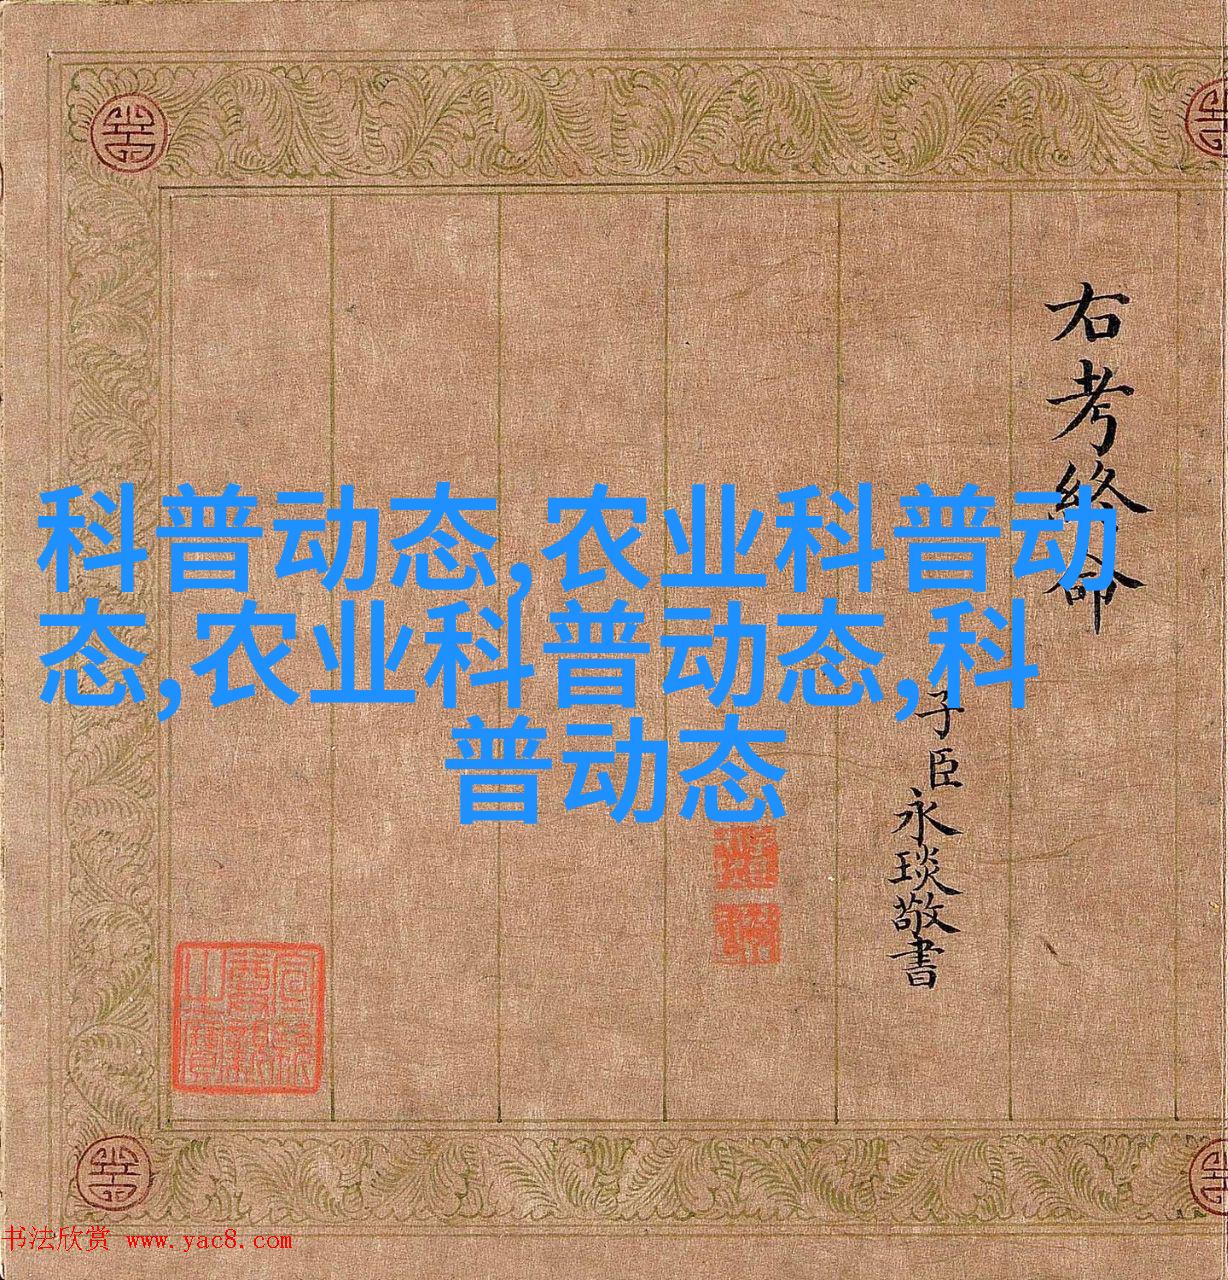 科普动态,农业科普动
态,农业科普动态,科
普动态
右考終命
子臣永琰敬書
书法欣赏 www.yac8.com